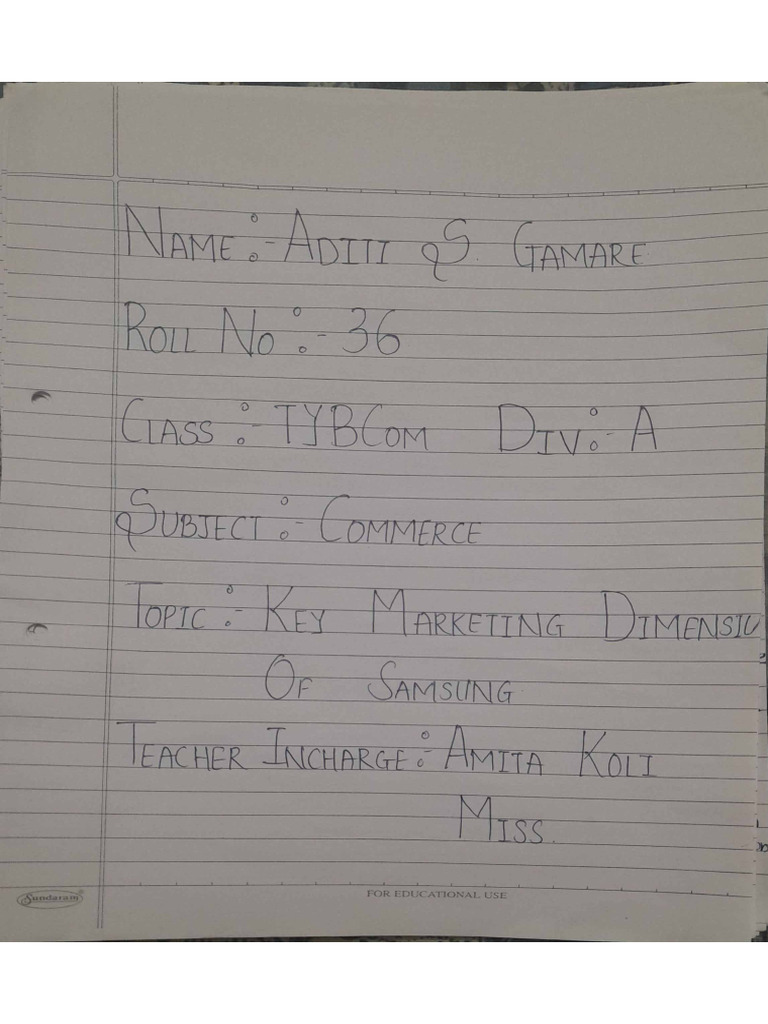 NAME :- ADITI S. GAMARE
ROLL NO :- 36
CLASS :- TYBCOM DIV :- A
SUBJECT :- COMMERCE
TOPIC :- KEY MARKETING
OF SAMSUNG
TEACHER INCHARGE :- AMITA KOLI
MISS.
Sundaram
FOR EDUCATIONAL USE